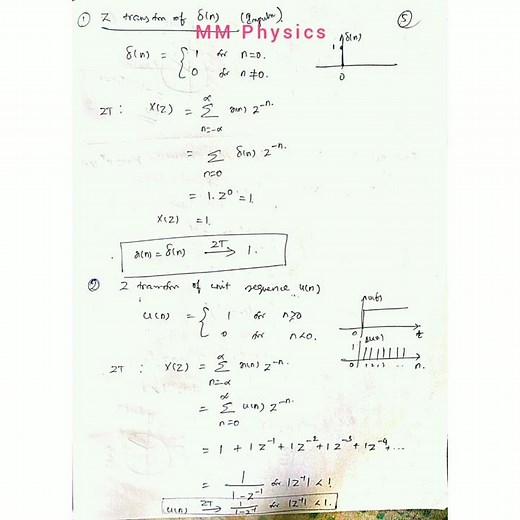 ① Z transfm of δ(n) (Impulse). ⑤
MM Physics
δ(n) = { 1 for n=0.
0 for n≠0.
δ(n)
1
0
ZT : X(Z) = ∑ x(n) z⁻ⁿ.
n=-α α
= ∑ δ(n) z⁻ⁿ.
n=0
= 1. z⁰ = 1.
X(Z) = 1.
x(n) = δ(n) ZT → 1.
② Z transfm of unit sequence u(n)
u(n) = { 1 for n≥0
0 for n<0.
u(t)
0 t
u(n)
1
0 1 2 3 ... n.
ZT : X(Z) = ∑ x(n) z⁻ⁿ.
n=-α α
= ∑ u(n) z⁻ⁿ.
n=0 α
= 1 + 1 z⁻¹ + 1 z⁻² + 1 z⁻³ + 1 z⁻⁴ + ...
= 1/(1-z⁻¹) for |z⁻¹| < 1.
u(n) ZT → 1/(1-z⁻¹) for |z⁻¹| < 1.